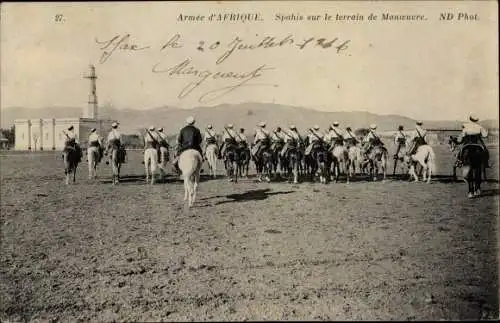 27. Armée d'AFRIQUE. Spahis sur le terrain de Manœuvre. ND Phot.
Sfax le 20 Juillet